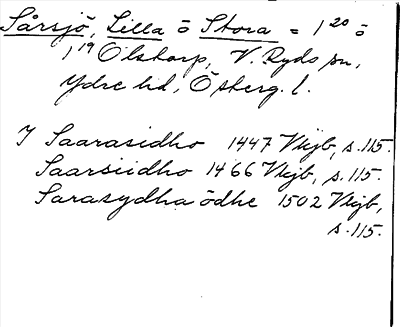 Sårsjö, Lilla o Stora = 1²⁰ o
1¹⁹ Olstorp, V. Ryds sn,
Ydre hd, Österg. l.
I Saarasidho 1447 Vkjb, s.115.
Saarsiidho 1466 Vkjb, s.115.
Sarasydha ödhe 1502 Vkjb,
s.115.